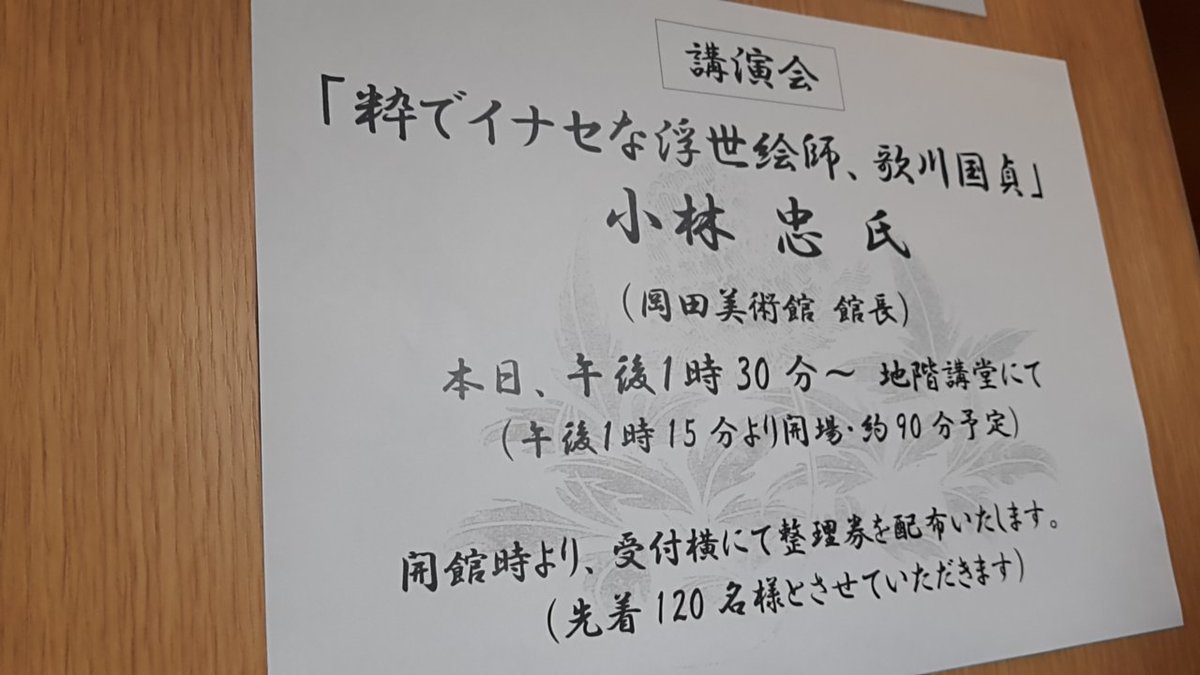 講演会
「粋でイナセな浮世絵師、歌川国貞」
小林 忠 氏
(岡田美術館 館長)
本日、午後1時30分～ 地階講堂にて
(午後1時15分より開場・約90分予定)
開館時より、受付横にて整理券を配布いたします。
(先着120名様とさせていただきます)